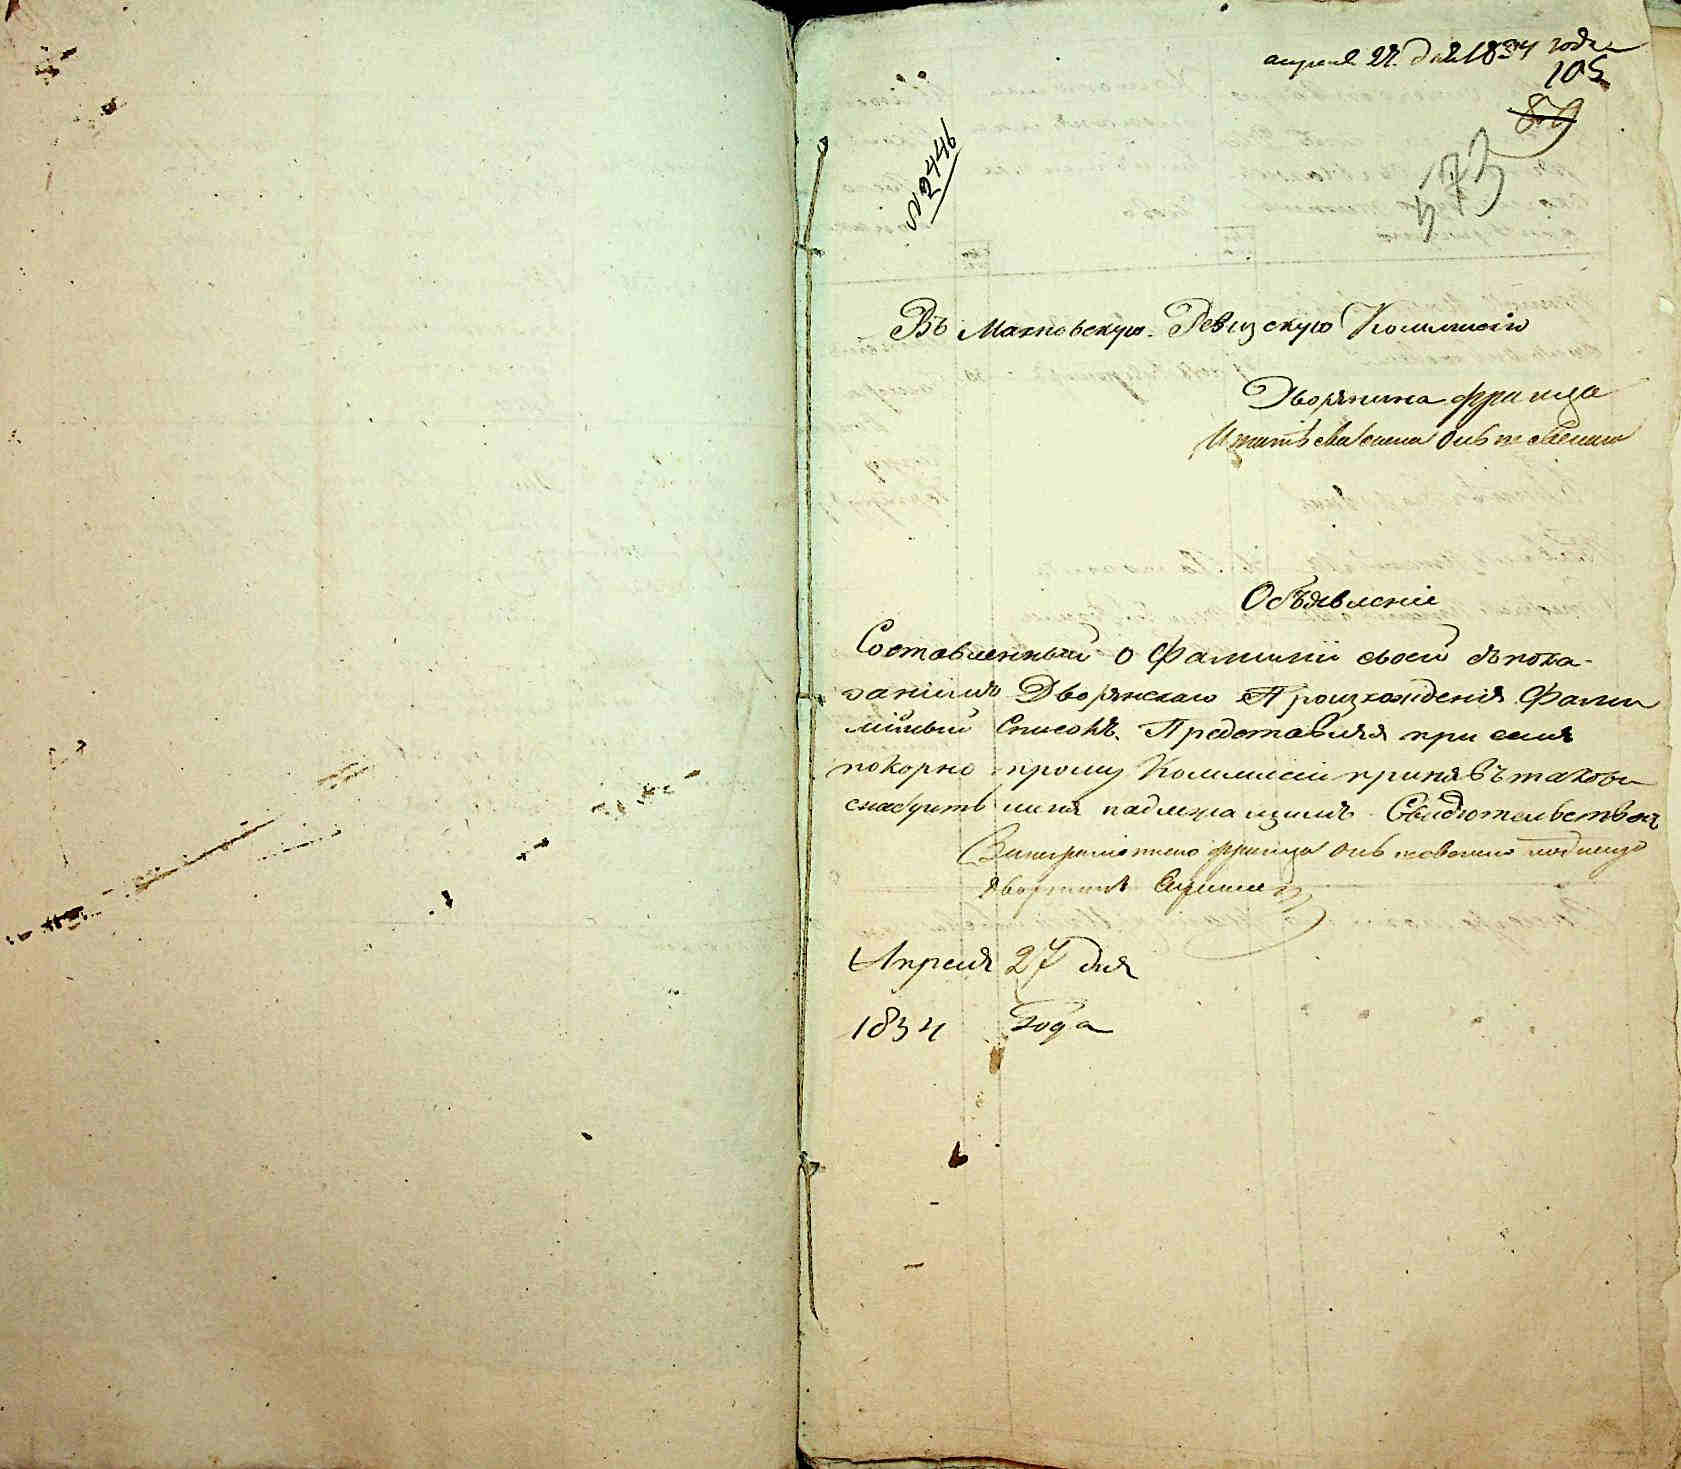 апреля 27. дня 1834 года
105
89
473
№ 2446
Въ Махновскую Ревизскую Коммисію
Дворянина Франца
Объявленіе
Составленный о Фамиліи своей съ пока-
заніемъ Дворянскаго Произхожденія Фами
лійный Списокъ. Представляя при семъ
покорно прошу Коммисіи принявъ таковы
снабдить меня надлежащимъ Свидѣтельствомъ
Франца
дворянинъ
Апреля 27 дня
1834 года